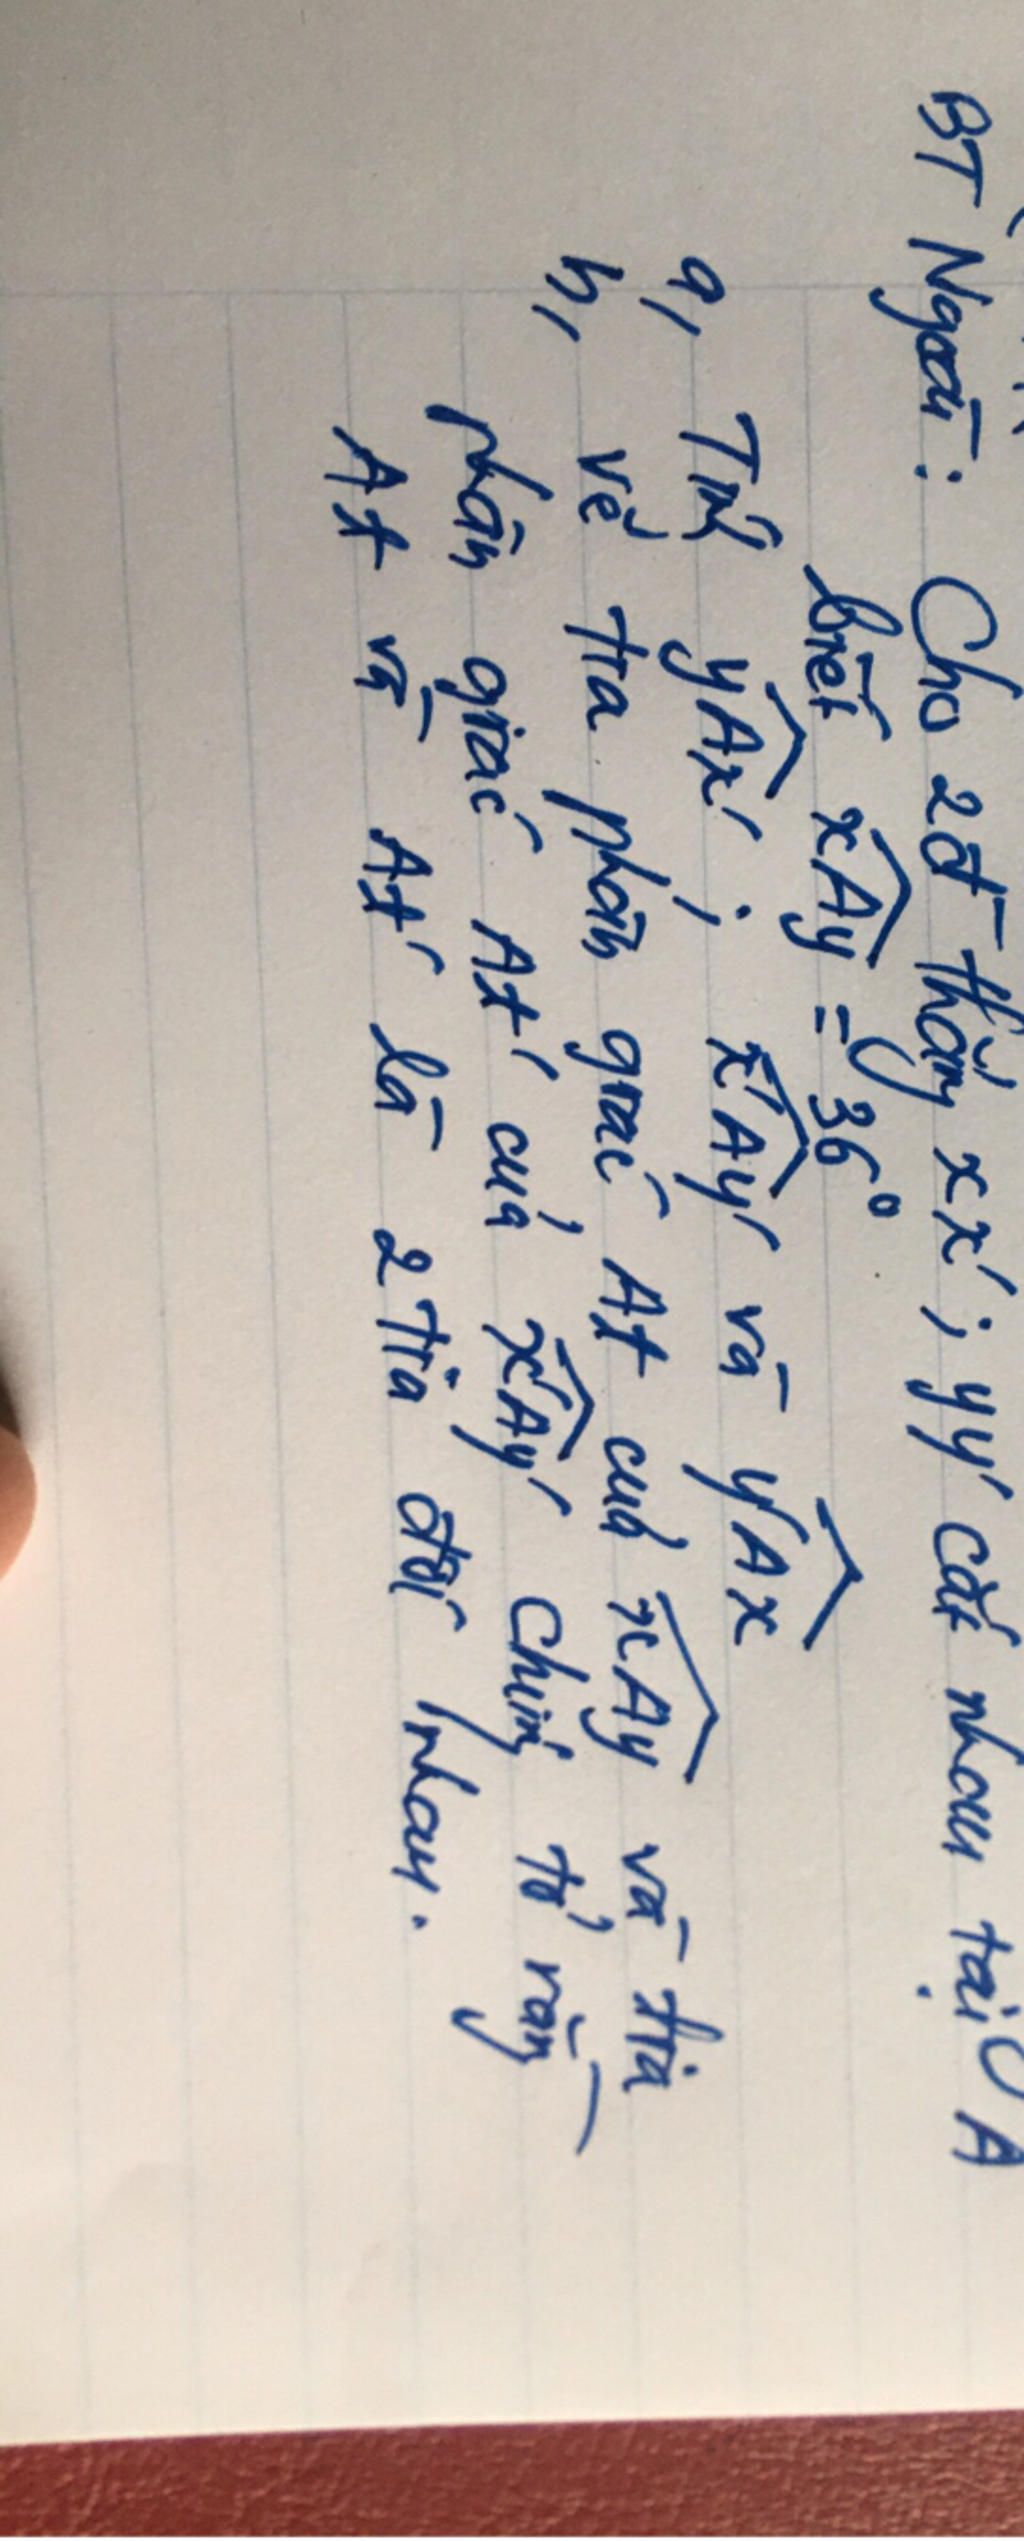 BT Ngoài: Cho 2 đt thẳng xx'; yy' cắt nhau tại A
biết xAy = 36°
a, Tính yAx'; x'Ay' và y'Ax
b, vẽ tia phân giác At của xAy và tia
phân giác At' của x'Ay' chứng tỏ rằng
At và At' là 2 tia đối nhau.